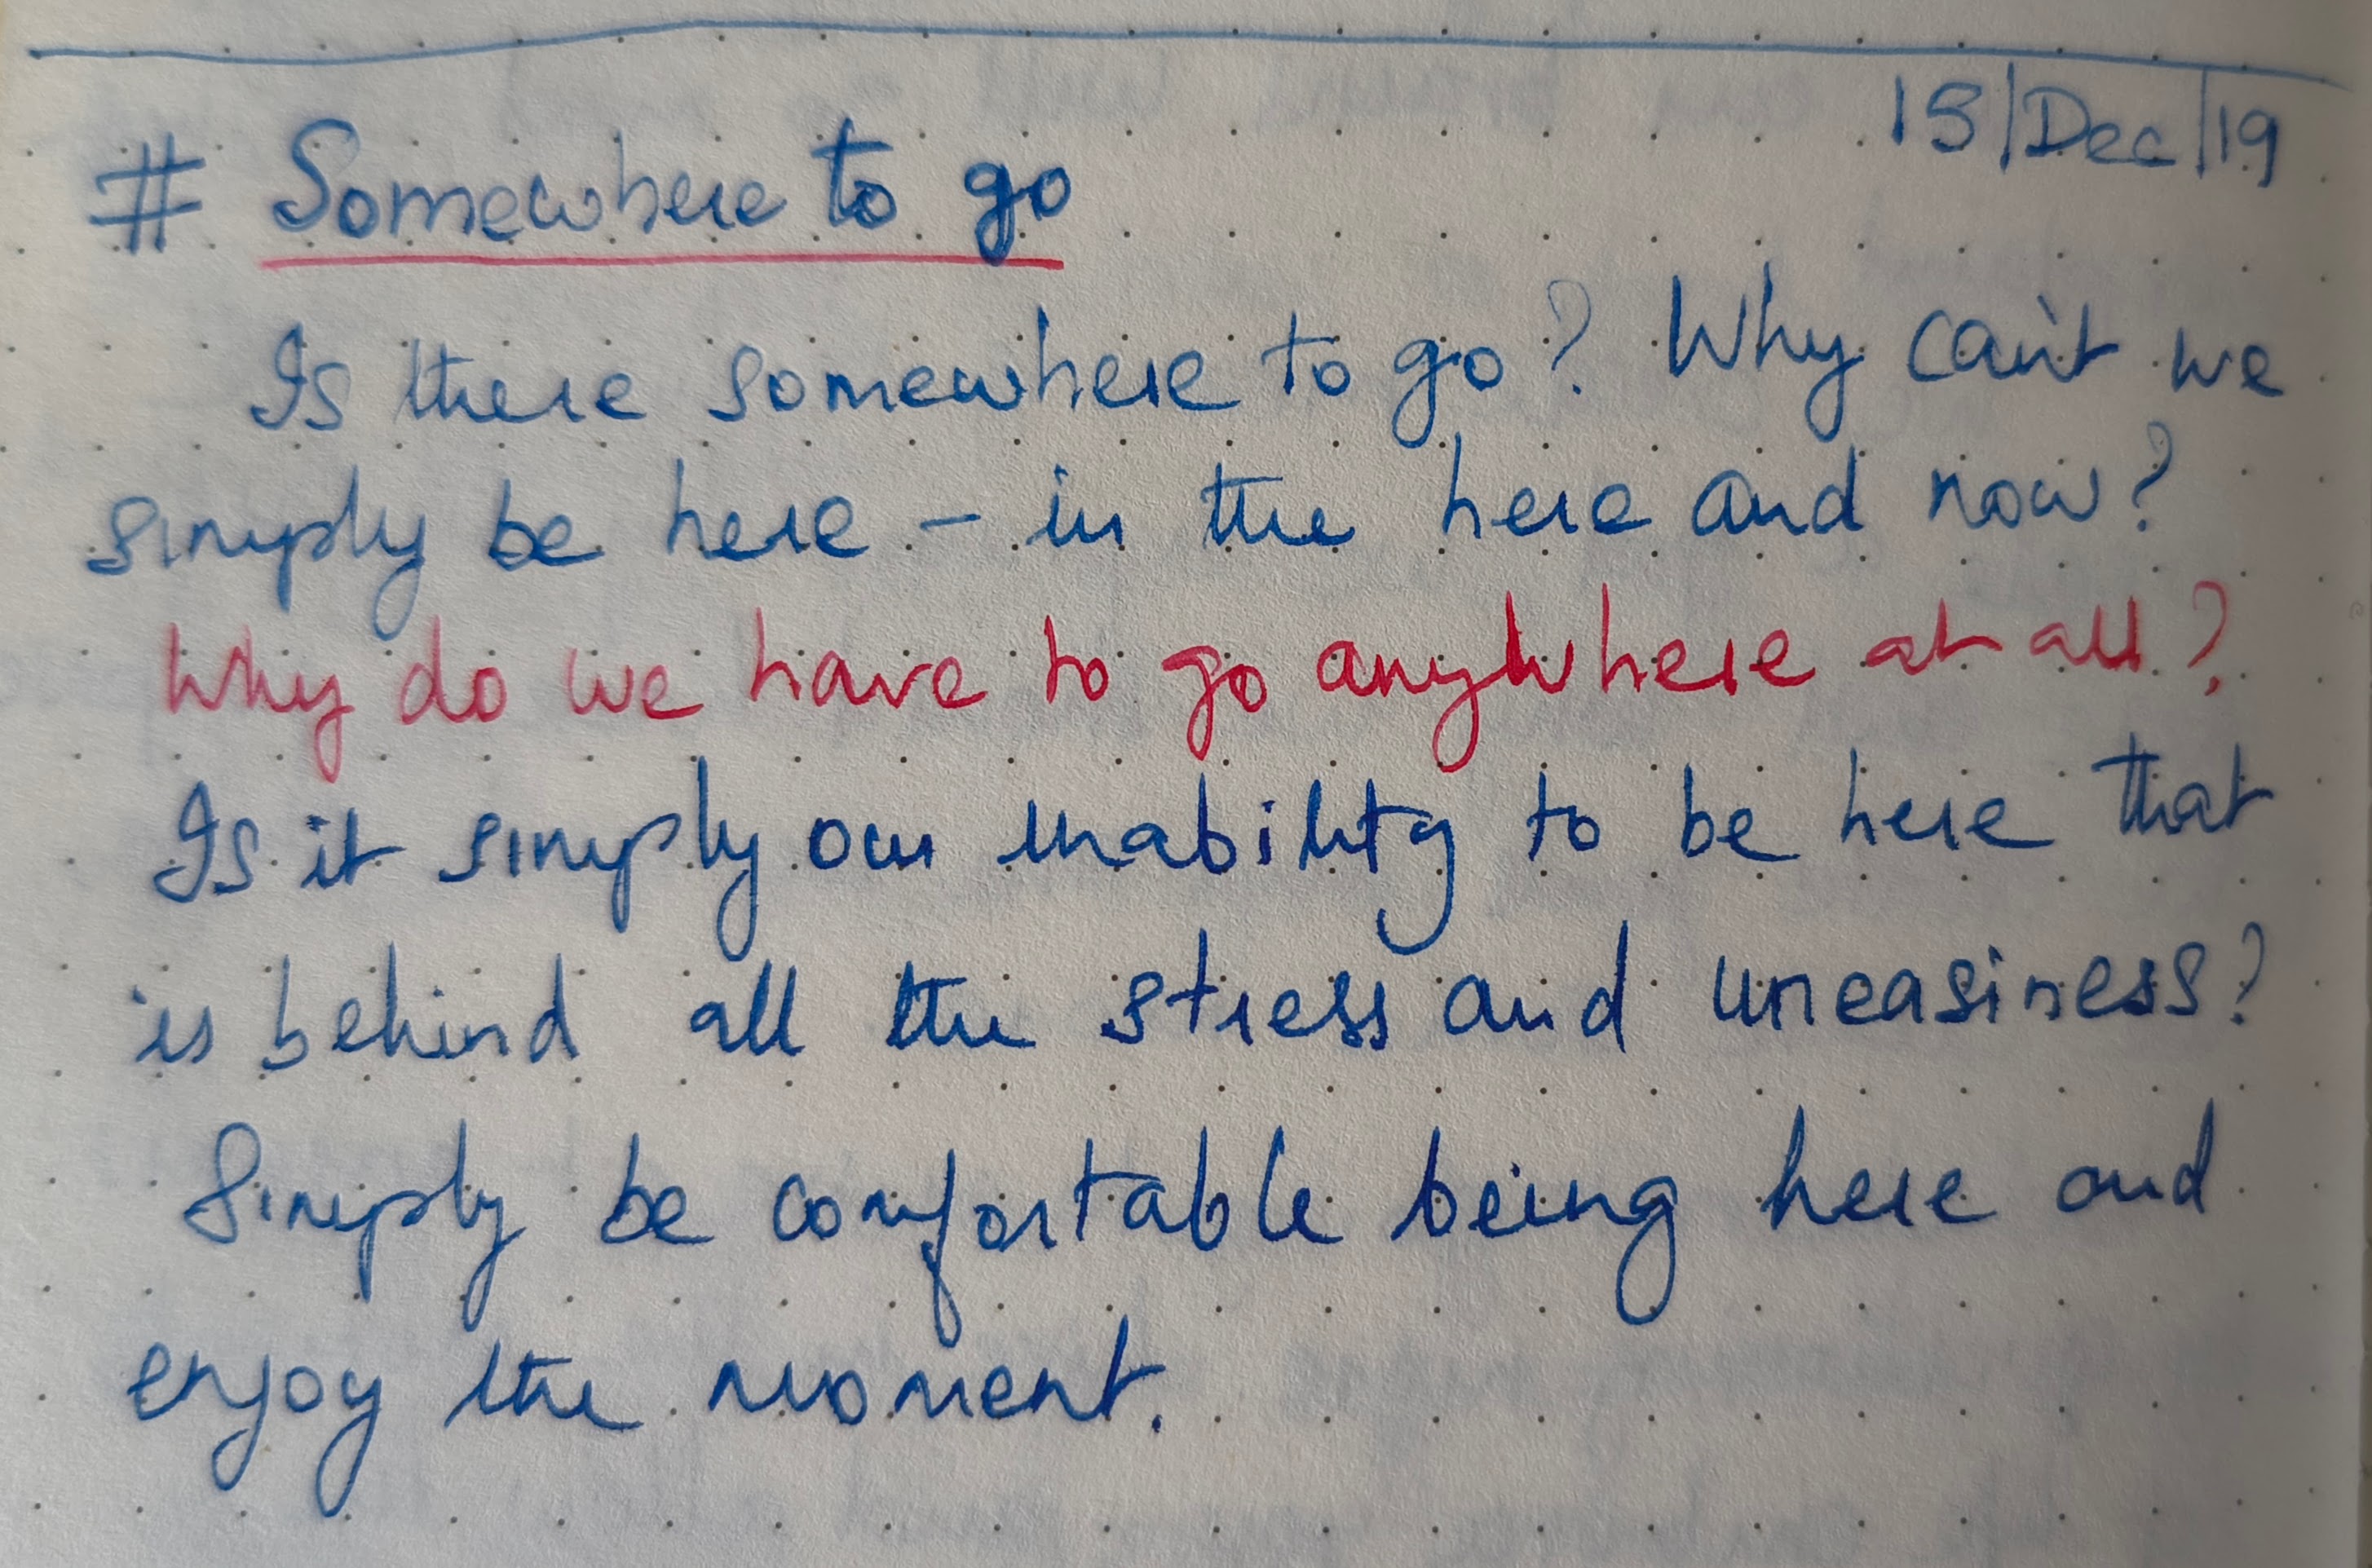 15/Dec/19
# Somewhere to go
Is there somewhere to go? Why can't we
simply be here - in the here and now?
Why do we have to go anywhere at all?
Is it simply our inability to be here that
is behind all the stress and uneasiness?
Simply be comfortable being here and
enjoy the moment.